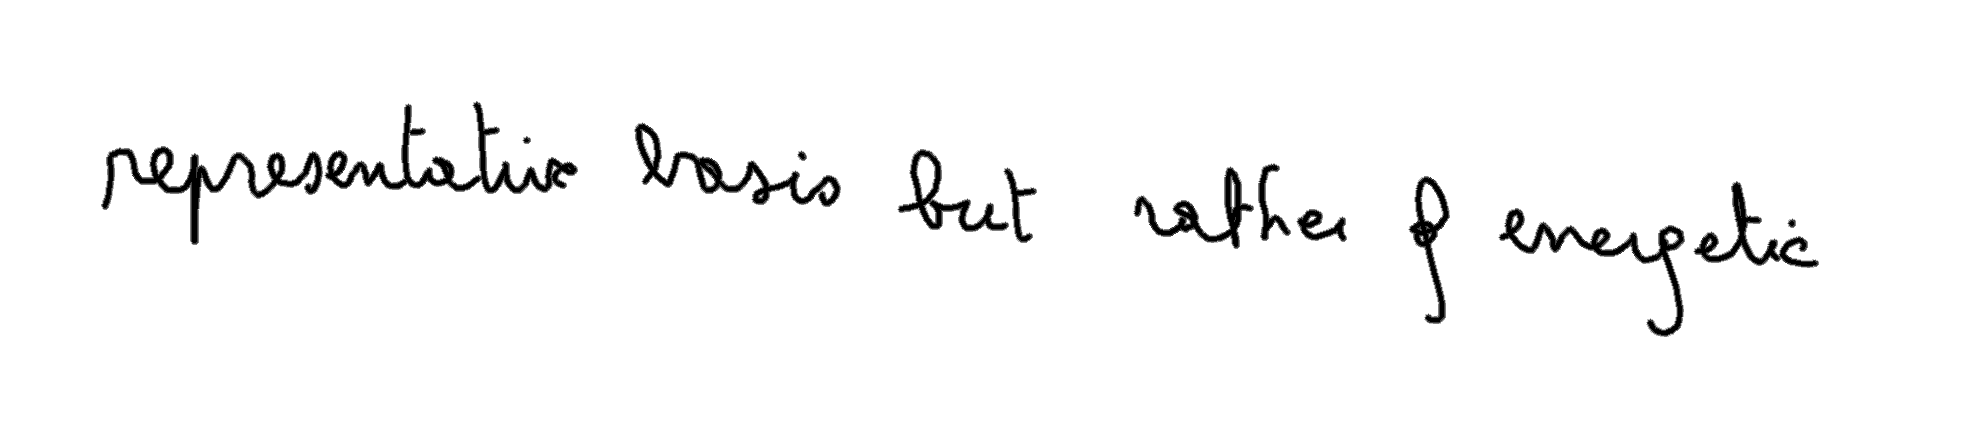 representative basis but rather of energetic